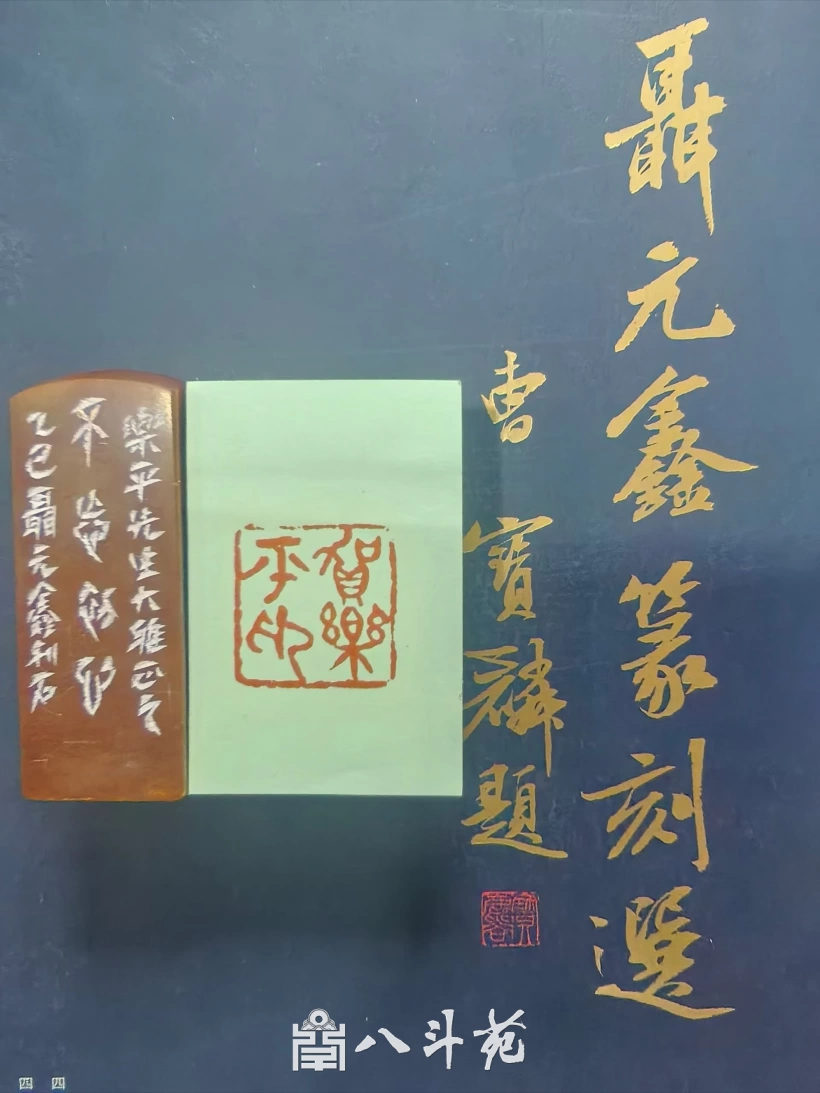 聶元鑫篆刻選
曹寶麟題
賀樂
平印
樂平先生大雅正之
乙巳聶元鑫利石
八斗苑
四 四